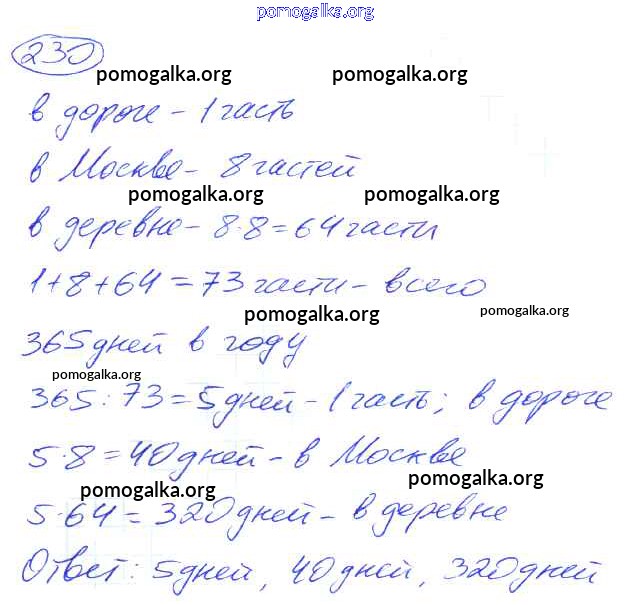 pomogalka.org
230
pomogalka.org pomogalka.org
в дороге - 1 часть
в Москве - 8 частей
pomogalka.org pomogalka.org
в деревне - 8·8=64 части
1+8+64=73 части - всего
pomogalka.org pomogalka.org
365 дней в году
pomogalka.org
365:73=5 дней - 1 часть; в дороге
5·8=40 дней - в Москве
pomogalka.org pomogalka.org
5·64=320 дней - в деревне
Ответ: 5 дней, 40 дней, 320 дней